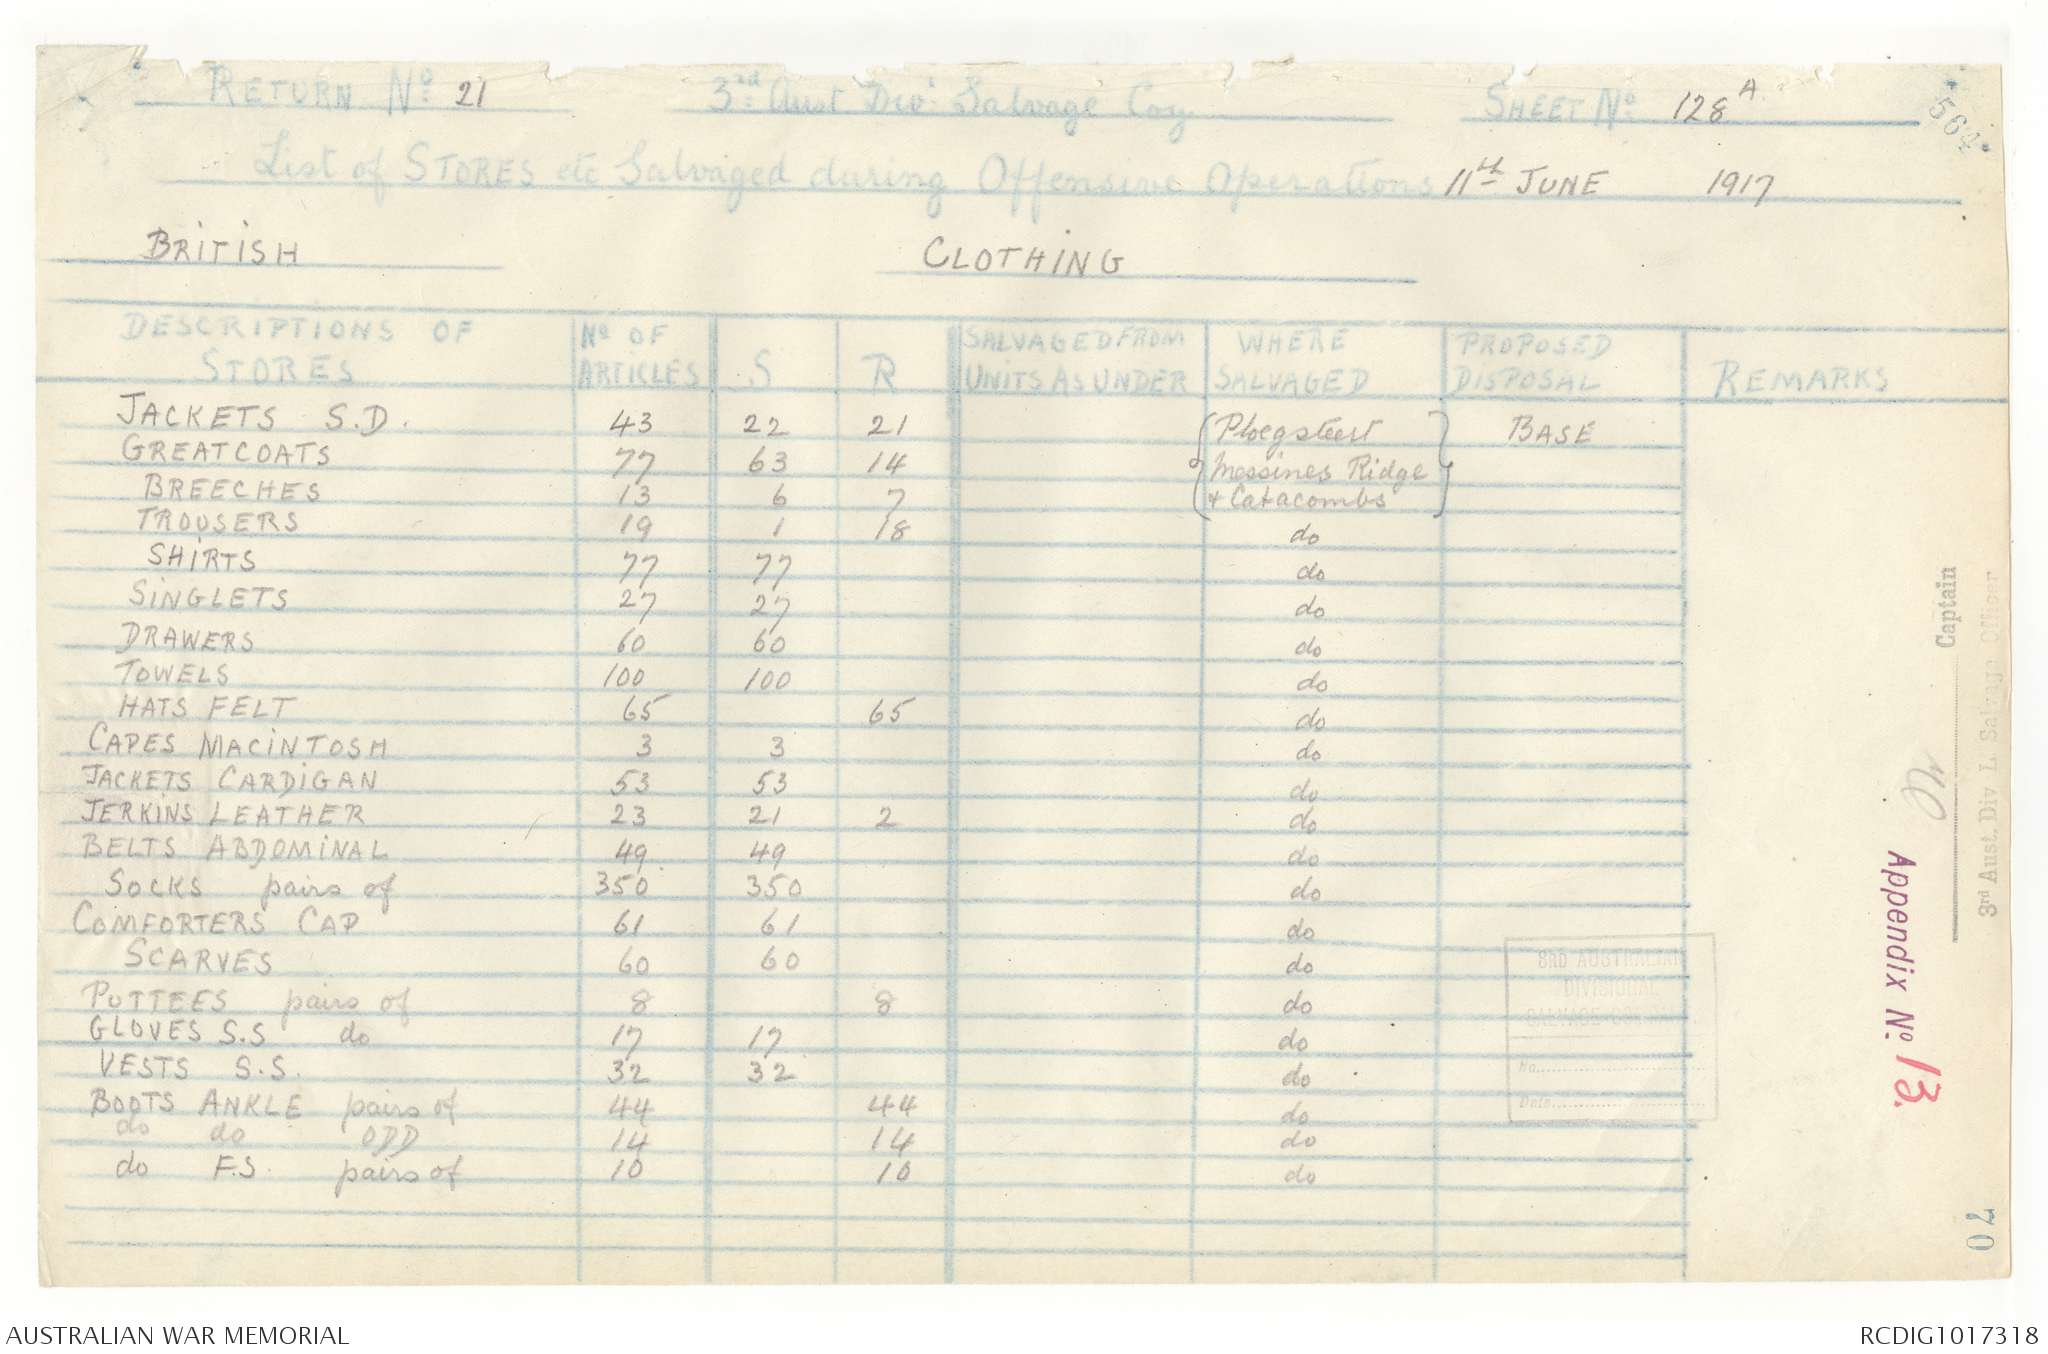 RETURN No. 21 3rd Aust Div: Salvage Coy. SHEET No. 128A
564
List of STORES etc Salvaged during Offensive Operations 11th JUNE 1917
BRITISH CLOTHING
DESCRIPTIONS OF STORES No OF ARTICLES S R SALVAGED FROM UNITS AS UNDER WHERE SALVAGED PROPOSED DISPOSAL REMARKS
JACKETS S.D. 43 22 21 { Ploegsteert } BASE
GREATCOATS 77 63 14 Messines Ridge
BREECHES 13 6 7 + Catacombs
TROUSERS 19 1 18 do
SHIRTS 77 77 do
SINGLETS 27 27 do
DRAWERS 60 60 do
TOWELS 100 100 do
HATS FELT 65 65 do
CAPES MACINTOSH 3 3 do
JACKETS CARDIGAN 53 53 do
JERKINS LEATHER 23 21 2 do
BELTS ABDOMINAL 49 49 do
SOCKS pairs of 350 350 do
COMFORTERS CAP 61 61 do
SCARVES 60 60 do
PUTTEES pairs of 8 8 do
GLOVES S.S do 17 17 do
VESTS S.S. 32 32 do
BOOTS ANKLE pairs of 44 44 do
do do ODD 14 14 do
do F.S. pairs of 10 10 do
3RD AUSTRALIAN
DIVISIONAL
SALVAGE COMPANY.
No.
Date
Captain
3rd Aust. Div. L. Salvage Officer
Appendix No. 13.
70
AUSTRALIAN WAR MEMORIAL RCDIG1017318